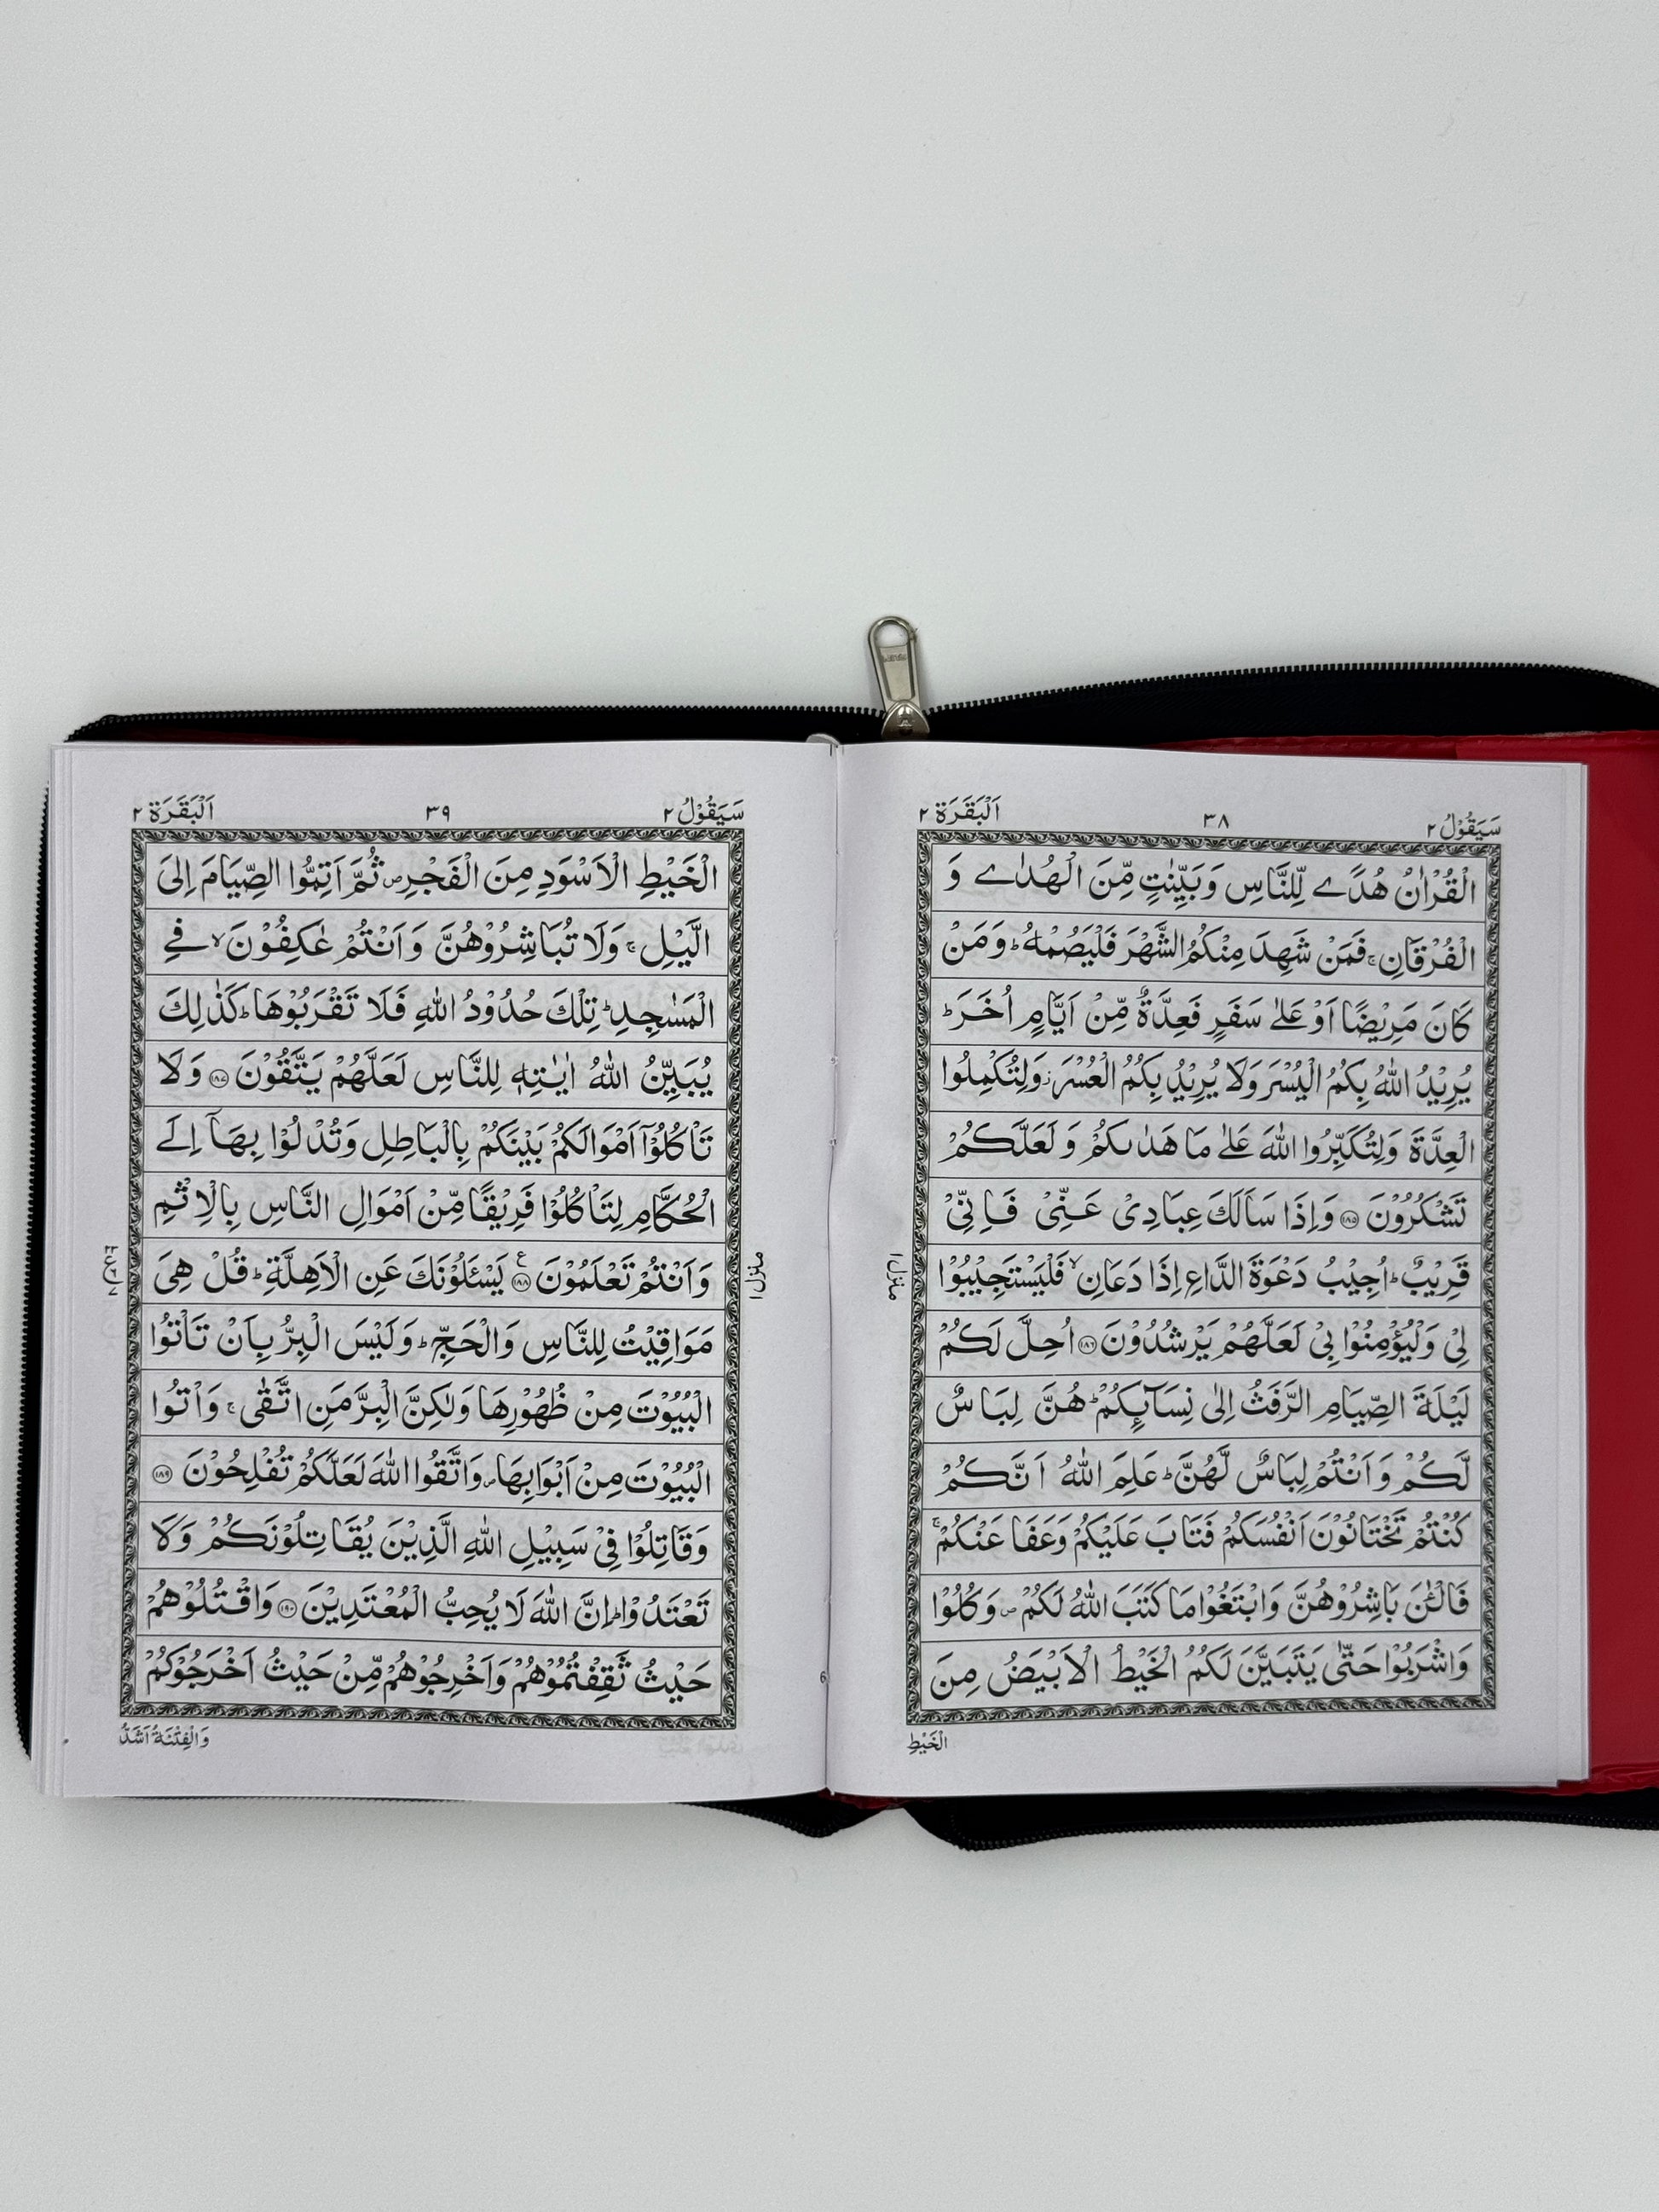 سَيَقُوْلُ ٢ ٣٨ اَلْبَقَرَة ٢
الْقُرْاٰنُ هُدًے لِّلنَّاسِ وَبَيِّنٰتٍ مِّنَ الْهُدٰے وَ
الْفُرْقَانِ ۚ فَمَنْ شَهِدَ مِنْكُمُ الشَّهْرَ فَلْيَصُمْهُ ؕ وَمَنْ
كَانَ مَرِيْضًا اَوْ عَلٰے سَفَرٍ فَعِدَّةٌ مِّنْ اَيَّامٍ اُخَرَ ؕ
يُرِيْدُ اللّٰهُ بِكُمُ الْيُسْرَ وَلَا يُرِيْدُ بِكُمُ الْعُسْرَ ؗ وَلِتُكْمِلُوا
الْعِدَّةَ وَلِتُكَبِّرُوا اللّٰهَ عَلٰے مَا هَدٰىكُمْ وَ لَعَلَّكُمْ
تَشْكُرُوْنَ ۝١٨٥ وَاِذَا سَاَلَكَ عِبَادِىْ عَنِّىْ فَاِنِّىْ
قَرِيْبٌ ؕ اُجِيْبُ دَعْوَةَ الدَّاعِ اِذَا دَعَانِ ۙ فَلْيَسْتَجِيْبُوْا
لِىْ وَلْيُؤْمِنُوْا بِىْ لَعَلَّهُمْ يَرْشُدُوْنَ ۝١٨٦ اُحِلَّ لَكُمْ
لَيْلَةَ الصِّيَامِ الرَّفَثُ اِلٰى نِسَآئِكُمْ ؕ هُنَّ لِبَاسٌ
لَّكُمْ وَ اَنْتُمْ لِبَاسٌ لَّهُنَّ ؕ عَلِمَ اللّٰهُ اَنَّكُمْ
كُنْتُمْ تَخْتَانُوْنَ اَنْفُسَكُمْ فَتَابَ عَلَيْكُمْ وَعَفَا عَنْكُمْ ۚ
فَالْـٰٔنَ بَاشِرُوْهُنَّ وَابْتَغُوْا مَا كَتَبَ اللّٰهُ لَكُمْ ص وَ كُلُوْا
وَاشْرَبُوْا حَتّٰى يَتَبَيَّنَ لَكُمُ الْخَيْطُ الْاَبْيَضُ مِنَ
الْخَيْطِ
منزل ١
سَيَقُوْلُ ٢ ٣٩ اَلْبَقَرَة ٢
الْخَيْطِ الْاَسْوَدِ مِنَ الْفَجْرِ ص ثُمَّ اَتِمُّوا الصِّيَامَ اِلَى
الَّيْلِ ۚ وَلَا تُبَاشِرُوْهُنَّ وَ اَنْتُمْ عٰكِفُوْنَ ۙ فِے
الْمَسٰجِدِ ؕ تِلْكَ حُدُوْدُ اللّٰهِ فَلَا تَقْرَبُوْهَا ؕ كَذٰلِكَ
يُبَيِّنُ اللّٰهُ اٰيٰتِهٖ لِلنَّاسِ لَعَلَّهُمْ يَتَّقُوْنَ ۝١٨٧ وَلَا
تَاْكُلُوْٓا اَمْوَالَكُمْ بَيْنَكُمْ بِالْبَاطِلِ وَتُدْلُوْا بِهَآ اِلَے
الْحُكَّامِ لِتَاْكُلُوْا فَرِيْقًا مِّنْ اَمْوَالِ النَّاسِ بِالْاِثْمِ
وَاَنْتُمْ تَعْلَمُوْنَ ۝١٨٨ ع يَسْئَلُوْنَكَ عَنِ الْاَهِلَّةِ ؕ قُلْ هِىَ
مَوَاقِيْتُ لِلنَّاسِ وَالْحَجِّ ؕ وَلَيْسَ الْبِرُّ بِاَنْ تَاْتُوا
الْبُيُوْتَ مِنْ ظُهُوْرِهَا وَلٰكِنَّ الْبِرَّ مَنِ اتَّقٰى ۚ وَاْتُوا
الْبُيُوْتَ مِنْ اَبْوَابِهَا ص وَاتَّقُوا اللّٰهَ لَعَلَّكُمْ تُفْلِحُوْنَ ۝١٨٩
وَقَاتِلُوْا فِىْ سَبِيْلِ اللّٰهِ الَّذِيْنَ يُقَاتِلُوْنَكُمْ وَلَا
تَعْتَدُوْا ؕ اِنَّ اللّٰهَ لَا يُحِبُّ الْمُعْتَدِيْنَ ۝١٩٠ وَاقْتُلُوْهُمْ
حَيْثُ ثَقِفْتُمُوْهُمْ وَاَخْرِجُوْهُمْ مِّنْ حَيْثُ اَخْرَجُوْكُمْ
وَالْفِتْنَةُ اَشَدُّ
منزل ١